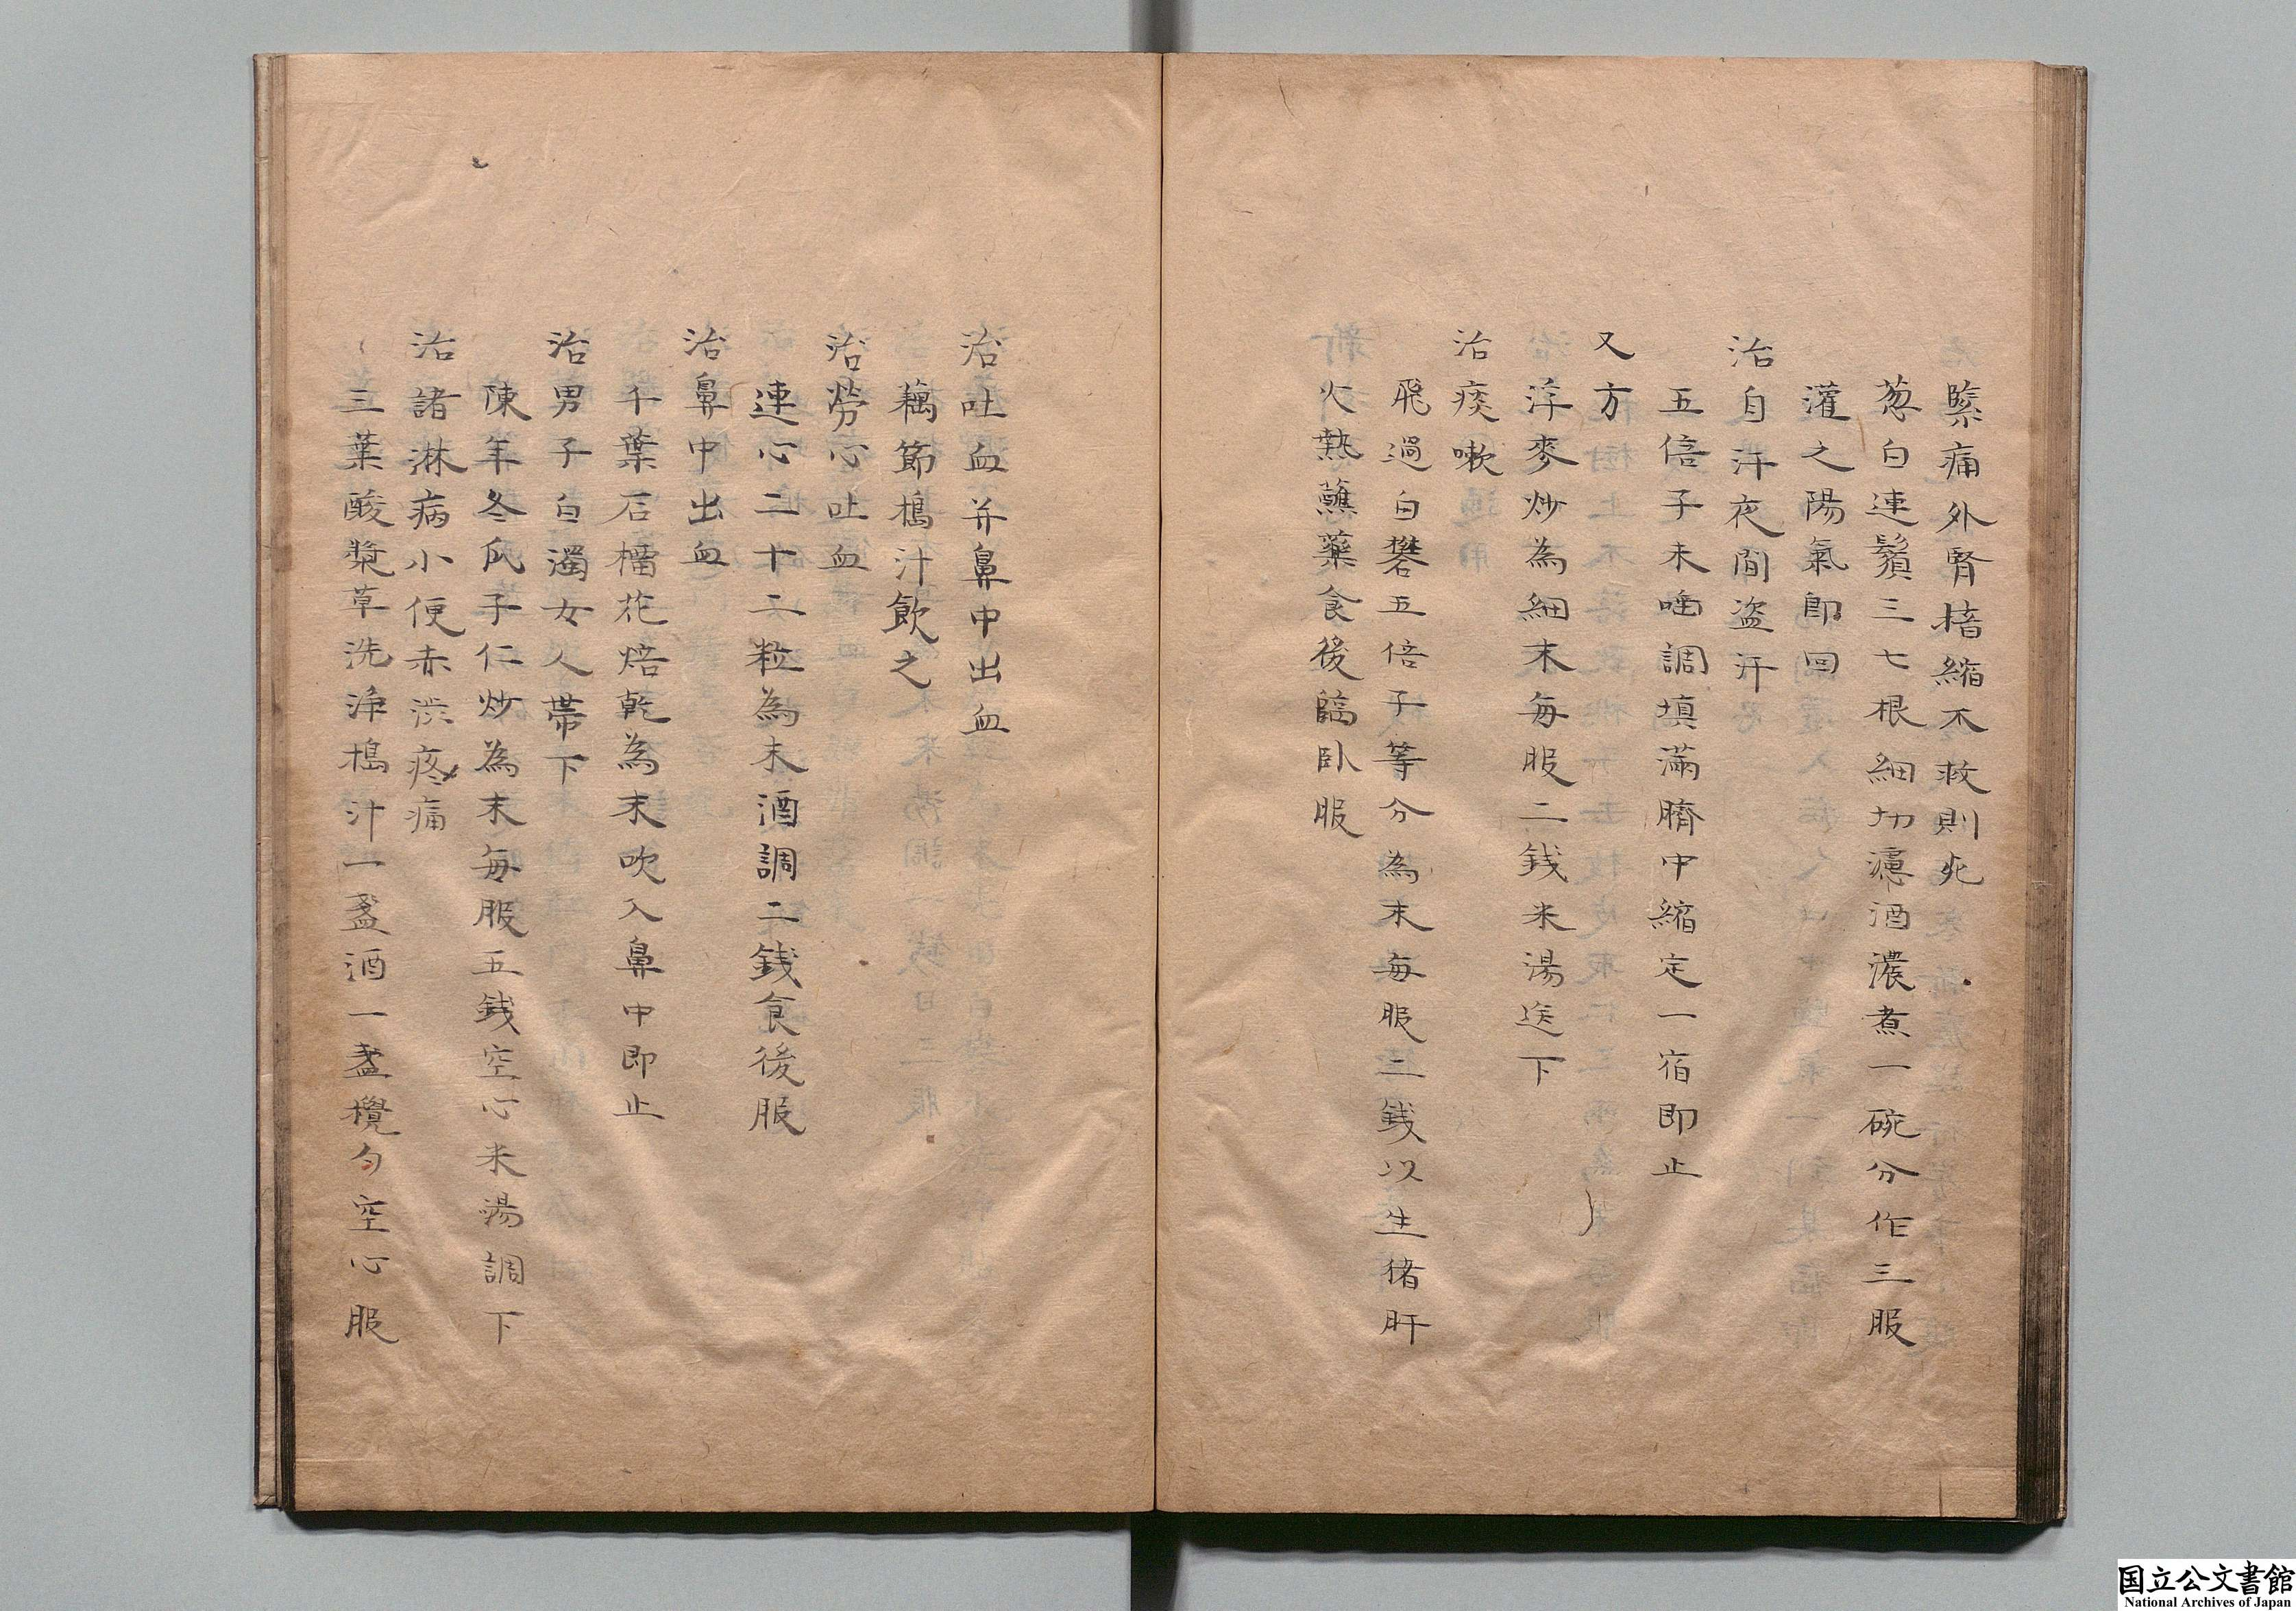 緊痛外腎搐縮不救則死
葱白連鬚三七根細切濾酒濃煮一碗分作三服
灌之陽氣即回
治自汗夜間盗汗
五倍子末唾調填滿臍中縮定一宿即止
又方
浮麥炒為細末每服二銭米湯送下
治痰嗽
飛過白礬五倍子等分為末每服二銭以生猪肝
火熱蘸藥食後臨卧服
治吐血并鼻中出血
藕節搗汁飲之
治勞心吐血
連心二十二粒為末酒調二銭食後服
治鼻中出血
千葉石榴花焙乾為末吹入鼻中即止
治男子白濁女人帶下
陳年冬瓜子仁炒為末每服五銭空心米湯調下
治諸淋病小便赤澁疼痛
三葉酸漿草洗淨搗汁一盞酒一盞攪匀空心服
国立公文書館
National Archives of Japan